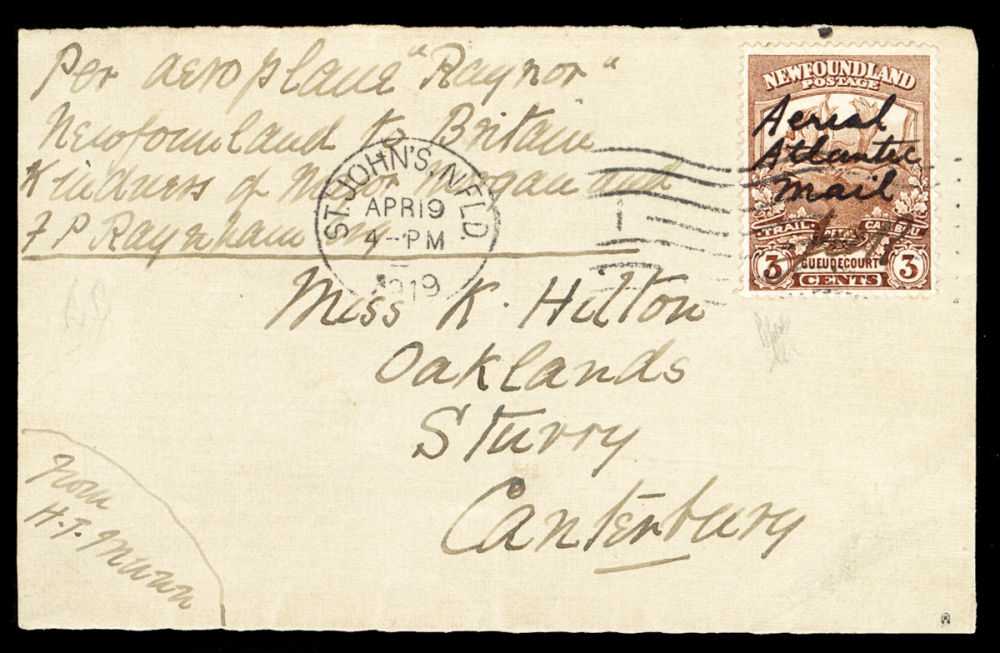 Per aeroplane "Raynor"
Newfoundland to Britain
Kindness of Major Morgan and
F P Raynham Esq
ST. JOHN'S, NFLD.
APR 19
4-PM
1919
NEWFOUNDLAND
POSTAGE
Aerial
Atlantic
Mail
TRAIL OF THE CARIBOU
GUEUDECOURT
3 CENTS 3
Miss K. Hilton
Oaklands
Sturry
Canterbury
From
H.T. Munn